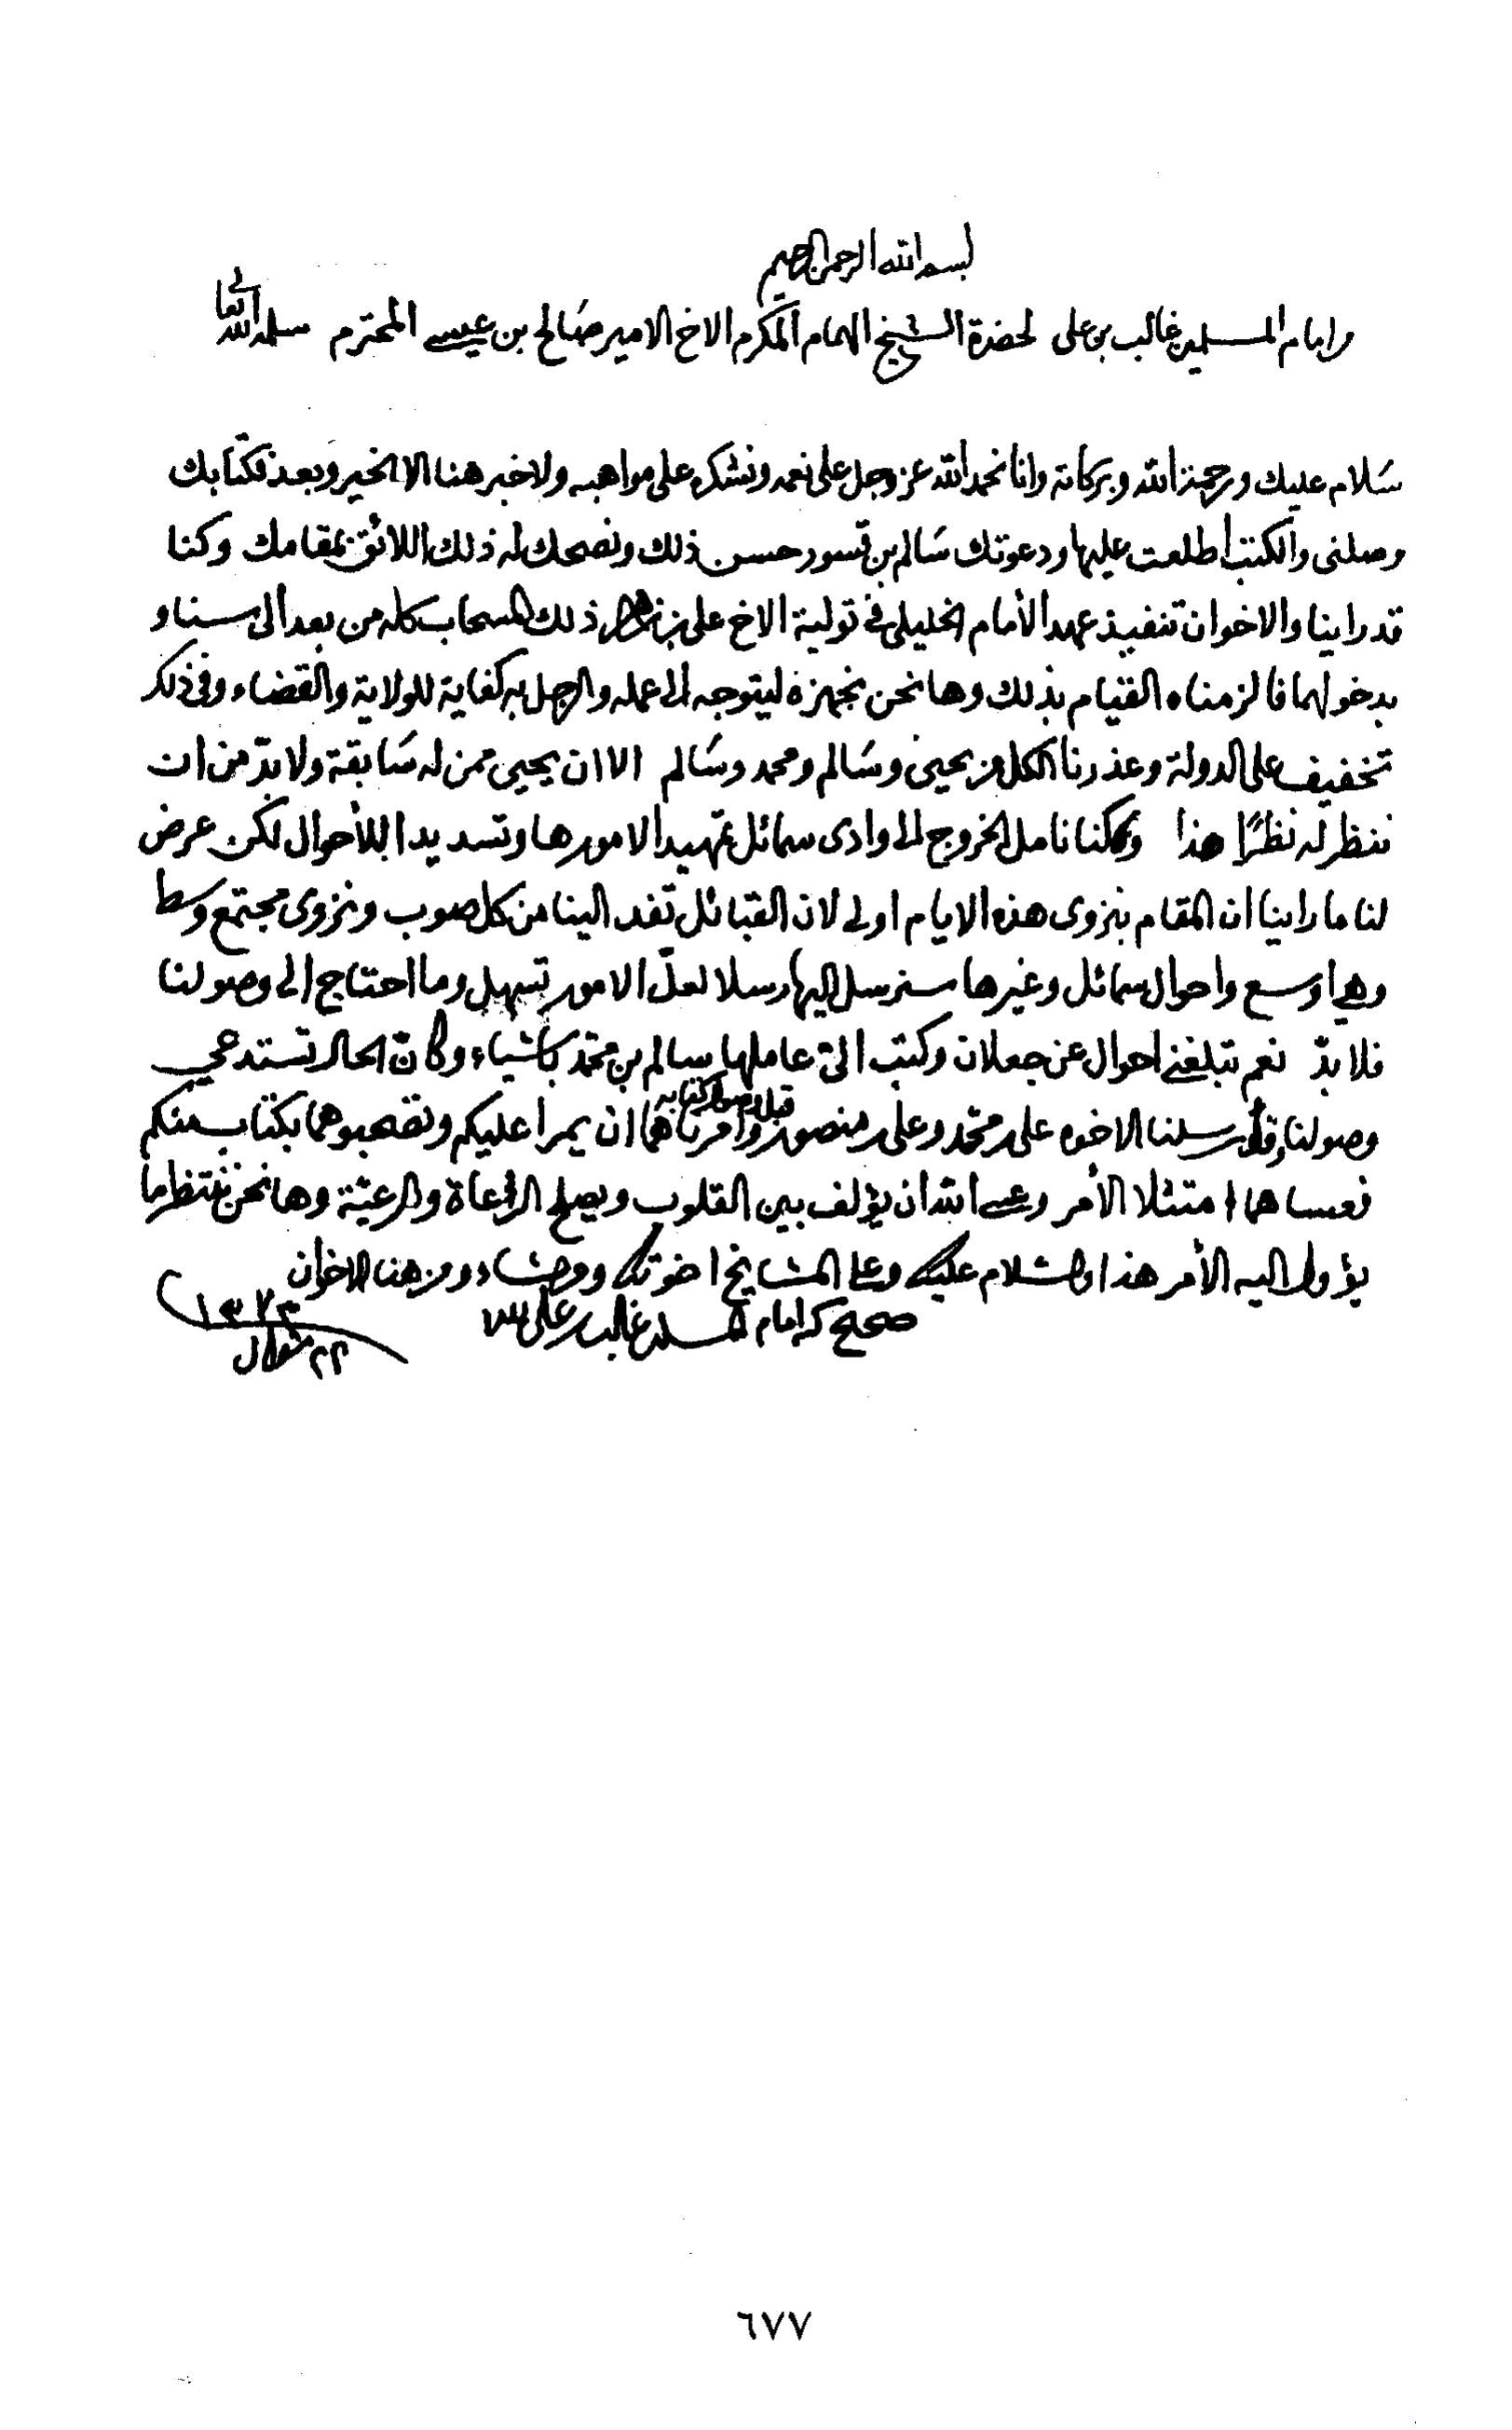 بسم الله الرحمن الرحيم
من امام المسلمين غالب بن علي لحضرة الشيخ الهمام المكرم الاخ الامير صالح بن عيسى المحترم سلمه الله تعالى
سلام عليك ورحمة الله وبركاته وانا نحمد الله عز وجل على نعمه ونشكره على مواهبه ولا خبر هنا الا الخير وبعد فكتابك
وصلني والكتب اطلعت عليها ودعوتك سالم بن قسور حسن ذلك ونصحك له ذلك اللائق بمقامك وكنا
قد راينا والاخوان تنفيذ عهد الأمام الخليلي في تولية الاخ علي بن ذلك السحاب كله من بعد الى سناو
بدخولهما فالزمناه القيام بذلك وها نحن نجهزه ليتوجه الى عمله والرجل به كفاية للولاية والقضاء وفي ذلك
تخفيف على الدولة وعذرنا الكل من يحيى وسالم ومحمد وسالم الا ان يحيى ممن له سابقة ولا بد من ان
ننظر له نظرًا هذا وكنا نامل الخروج الى وادى سمائل تمهيدا لامورها وتسديدا للأحوال لكن عرض
لنا ما راينا ان المقام بنزوى هذه الايام اولى لان القبائل تفد الينا من كل صوب ونزوى مجتمع وسط
وهي اوسع واحوال سمائل وغيرها سنرسل اليها رسلا لعل الامور تسهل وما احتاج الى وصولنا
فلا بد نعم تبلغني احوال عن جعلان وكتب الي عاملها سالم بن محمد باشياء وكان الحال تستدعي
وصولنا وقد ارسلنا الاخوه علي بن محمد وعلي بن منصور قبل وصول كتابه وامرناهما ان يمرا عليكم وتصحبوهما بكتاب منكم
فعساهما امتثلا الأمر وعسى الله ان يؤلف بين القلوب ويصلح الرعاة والرعية وها نحن ننتظر ما
يؤول اليه الأمر هذا والسلام عليك وعلى المشايخ اخوتك ومن شاء ومن هنا الاخوان
صحيح كر امام المسلمين غالب بن علي بيده
١٣٧٣
٢٢ شوال
٦٧٧